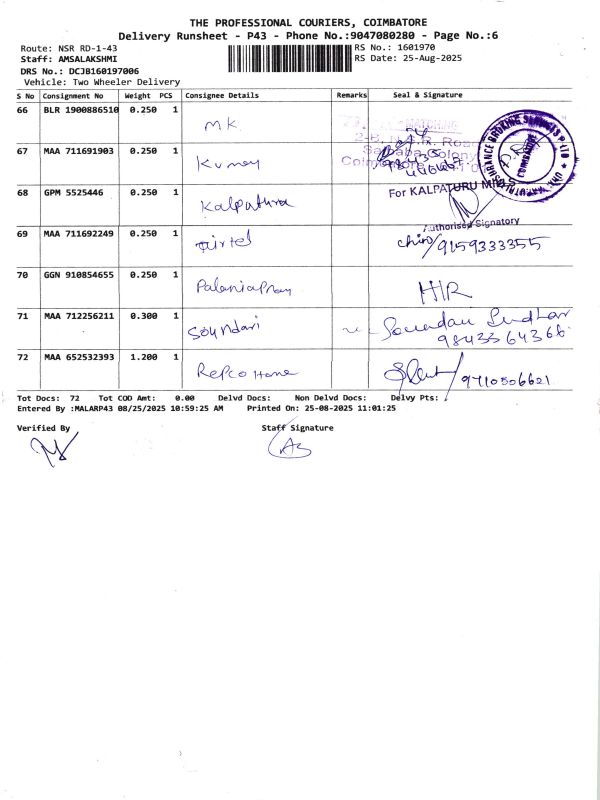 THE PROFESSIONAL COURIERS, COIMBATORE
Delivery Runsheet - P43 - Phone No.:9047080280 - Page No.:6
Route: NSR RD-1-43
RS No.: 1601970
Staff: AMSALAKSHMI
RS Date: 25-Aug-2025
DRS No.: DCJB160197006
Vehicle: Two Wheeler Delivery
S No Consignment No Weight PCS Consignee Details Remarks Seal & Signature
66 BLR 1900886510 0.250 1 M.K.
67 MAA 711691903 0.250 1 Kumar
68 GPM 5525446 0.250 1 Kalpatura For KALPATURU
Authorised Signatory
69 MAA 711692249 0.250 1 airtel 9159333355
70 GGN 910854655 0.250 1
71 MAA 712256211 0.300 1 Soundari
9843564366
72 MAA 652532393 1.200 1 Repco Home 9710506621
Tot Docs: 72 Tot COD Amt: 0.00 Delvd Docs: Non Delvd Docs: Delvy Pts:
Entered By :MALARP43 08/25/2025 10:59:25 AM Printed On: 25-08-2025 11:01:25
Verified By Staff Signature